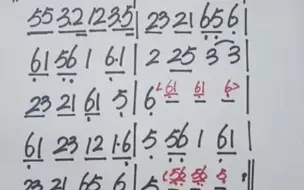 55 32 12 35 | 23 21 656
61 56 1 6·1 | 2 25 3 3
23 21 61 5 | 6 <61 61 6>
61 23 12 1·6 | 5 56 1 61
23 21 65 6 | 5 (56 56 5